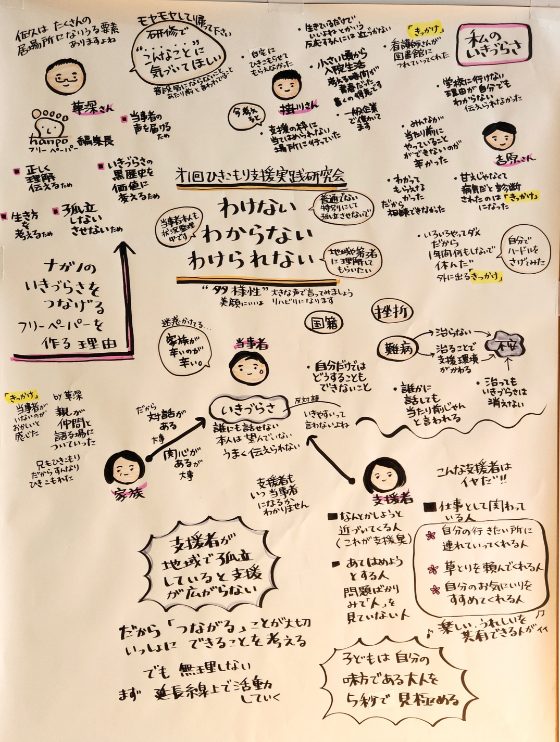 佐久は たくさんの
居場所になりうる要素
ありますよね
モヤモヤして帰って下さい
研修で
"こんなことに
気づいてほしい"
葦澤さん
hanpo 編集長
フリーペーパー
当事者の
声を届ける
ため
正しく
理解
伝えるため
いきづらさの
黒歴史を
価値に
変えるため
生き方
を考えるため
孤立
しない
させないため
ナガノの
いきづらさを
つなげる
フリーペーパーを
作る理由
掛川さん
生きているだけで
いいよねとかいう
小さい頃から
入院生活
支援の枠に
当てはめられない
場所に行っていた
一般企業
で働いて
ます
「きっかけ」
看護師さんが
図書館に
つれていってくれた
私の
いきづらさ
学校に行けない
理由が自分でも
わからない
伝えられなかった
みんなが
当たり前に
やっていること
ができないのが
辛かった
わかって
もらえな
かった
だから
相談できなかった
甘えじゃなくて
病気だと診断
されたのは「きっかけ」
になった
いろいろやってダメ
だから
1年間何もしないで
休んだ
外に出るきっかけ
自分で
ハードルを
さげてみた
第1回ひきこもり支援実践研究会
わけない
わからない
わけられない
当事者本人も
状況整理
中です
普通でない
特別にして
孤立させないで
地域や若者
に理解して
もらいたい
"多様性" 大きな声で言ってみましょう
リハビリになります
国籍
挫折
難病
治らない
治ることで
支援環境
がかわる
不安
治っても
いきづらさは
消えない
迷惑かけて…
家族が
辛いのが
辛い。
当事者
自分だけでは
どうすることも
できないこと
誰かに
話しても
当たり前じゃん
と言われる
いきづらさ
反対語
いきやすいって
言わないよね
誰にも話せない
本人は望んでいない
うまく伝えられない
「きっかけ」 by 葦澤
当事者が
いないのが
おかしいと
感じた
親が
仲間と
語る場に
ついていった
兄もひきこもり
だからすんなり
ひきこもれた
だから
対話が
ある
大事
関心が
あるが
大事
家族
支援者も
いつ当事者
になるか
わかりません
支援者
なんとかしようと
近づいてくる人
(これが支援臭)
あてはめよう
とする人
問題ばかり
みて「人」を
見ていない人
こんな支援者は
イヤだ!!
仕事として関わって
いる人
自分の行きたい所に
連れていってくれる人
草とりを頼んでくれる人
自分のお気にいりを
すすめてくれる人
楽しい、うれしいを
共有できる人がイイ
支援者が
地域で孤立
していると支援
が広がらない
だから「つながる」ことが大切
いっしょに できることを考える
でも 無理しない
まず 延長線上で活動
していく
子どもは自分の
味方である大人を
5秒で見極める